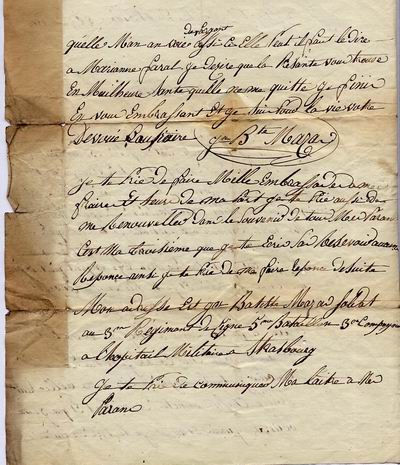 de l'argent
quelle Man an voie ausi ce Elle peut il faut le dire
a Marianne faral je desire que la presante vous trouve
En Meilheure Sante quelle ne me quitte je fini
En vous Embrassant Et je suis pour la vie votre
Devoué frair jn Bte Mazar
je te prie de faire Mille Embrassade a me
fraire Et seur de ma part je te prie ausi de
me Renouveller dans le souvenir de tous Mes paran
cest Ma troisieme que je Ecris san Resevoir aucune
Reponce ainsi je te prie de me faire repose de suite
Mon adresse Est jean Batiste Mazar soldat
au 3me Regiment de Ligne 5me Bataillon 3me Compagnie
a l'hopitail Militaire a Strasbourg
je te prie de communiquer Ma laitre a Mes
Paran